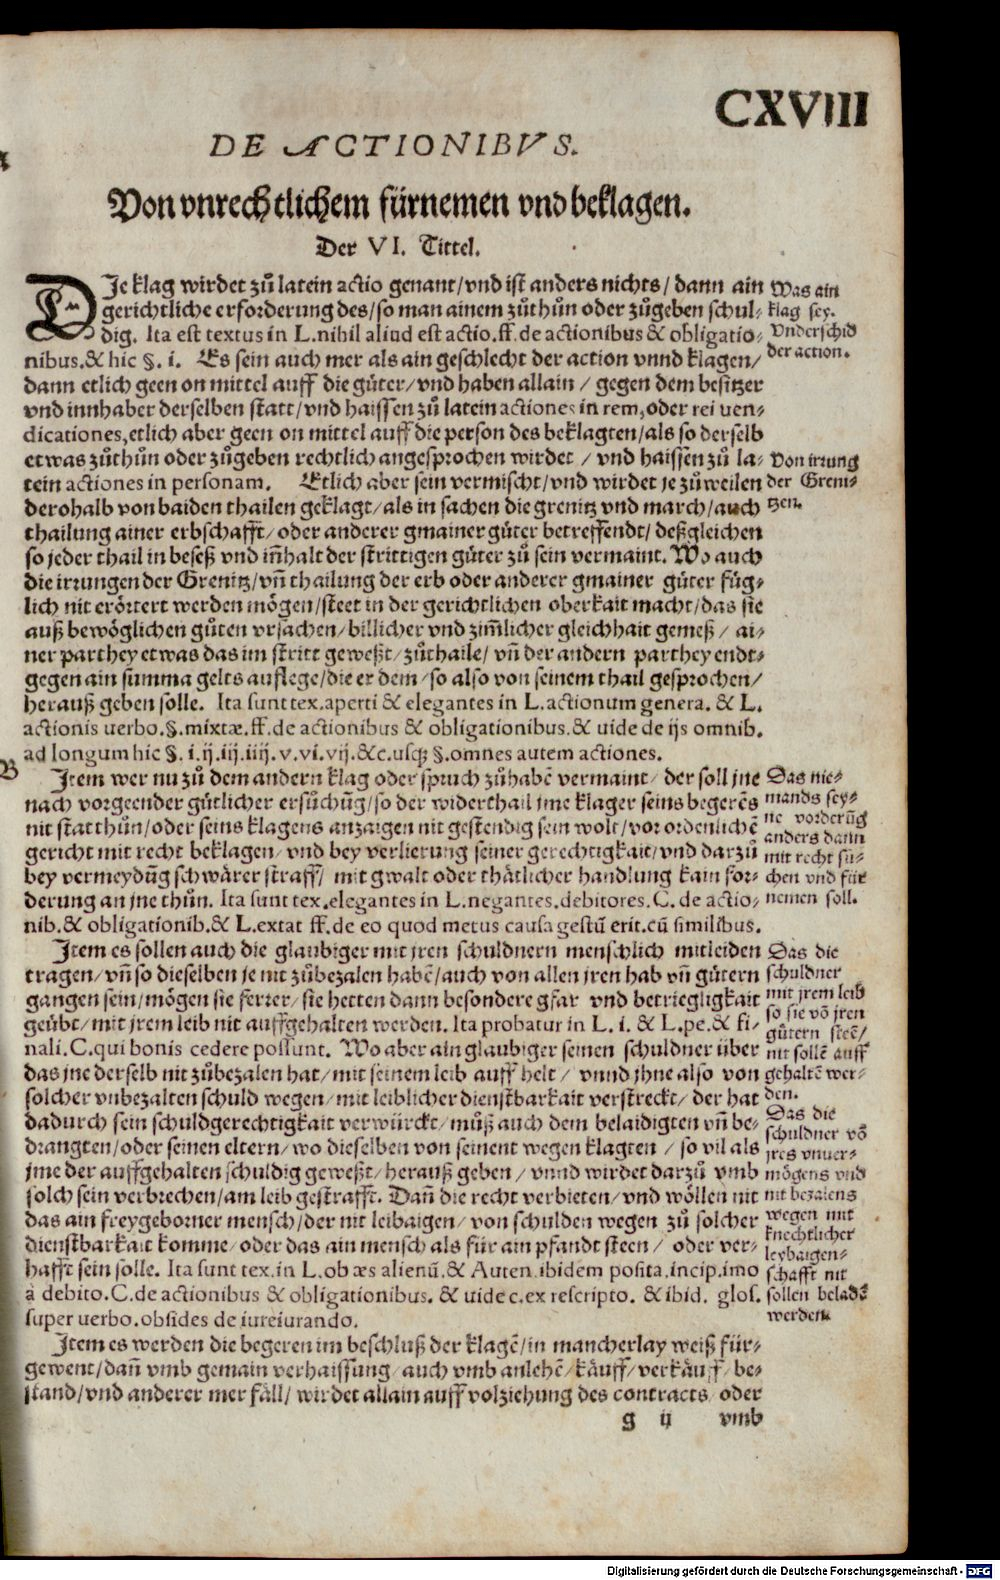 CXVIII
DE ACTIONIBVS.
Von vnrechtlichem fürnemen vnd beklagen.
Der VI. Tittel.
DJe klag wirdet zů latein actio genant/vnd ist anders nichts/ dann ain
gerichtliche erforderung des/so man ainem zůthůn oder zůgeben schul⸗
dig. Ita est textus in L.nihil aliud est actio.ff.de actionibus & obligatio-
nibus.& hic §. i. Es sein auch mer als ain geschlecht der action vnnd klagen/
dann etlich geen on mittel auff die güter/vnd haben allain / gegen dem besitzer
vnd innhaber derselben statt/vnd haissen zů latein actiones in rem,oder rei uen-
dicationes,etlich aber geen on mittel auff die person des beklagten/als so derselb
etwas zůthůn oder zůgeben rechtlich angesprochen wirdet / vnd haissen zů la⸗
tein actiones in personam. Etlich aber sein vermischt/vnd wirdet je zůweilen
derohalb von baiden thailen geklagt/als in sachen die grenitz vnd march/auch
thailung ainer erbschafft/oder anderer gmainer güter betreffendt/deßgleichen
so jeder thail in beseß vnd iñhalt der strittigen güter zů sein vermaint. Wo auch
die irrungen der Grenitz/vñ thailung der erb oder anderer gmainer güter füg⸗
lich nit erörtert werden mögen/steet in der gerichtlichen oberkait macht/das sie
auß bewöglichen gůten vrsachen/billicher vnd zim̃licher gleichhait gemeß / ai⸗
ner parthey etwas das im stritt geweßt/zůthaile/vñ der andern parthey endt⸗
gegen ain summa gelts auflege/die er dem/so also von seinem thail gesprochen/
herauß geben solle. Ita sunt tex.aperti & elegantes in L.actionum genera. & L.
actionis uerbo.§.mixtæ.ff.de actionibus & obligationibus.& uide de ijs omnib.
ad longum hic §. i.ij.iij.iiij.v.vi.vij.&c.usq; §.omnes autem actiones.
B
Jtem wer nu zů dem andern klag oder spruch zůhabẽ vermaint/ der soll jne
nach vorgeender gütlicher ersůchũg/so der widerthail jme klager seins begerẽs
nit statthůn/oder seins klagens anzaigen nit gestendig sein wolt/vor ordenlichẽ
gericht mit recht beklagen/vnd bey verlierung seiner gerechtigkait/vnd darzů
bey vermeydũg schwärer straff/ mit gwalt oder thätlicher handlung kain for⸗
derung an jne thůn. Ita sunt tex.elegantes in L.negantes.debitores.C. de actio-
nib.& obligationib.& L.extat ff.de eo quod metus causa gestũ erit.cũ similibus.
Jtem es sollen auch die glaubiger mit jren schuldnern menschlich mitleiden
tragen/vñ so dieselben je nit zůbezalen habẽ/auch von allen jren hab vñ gütern
gangen sein/mögen sie ferrer/sie hetten dann besondere gfar vnd betriegligkait
geübt/mit jrem leib nit auffgehalten werden. Ita probatur in L. i. & L.pe.& fi-
nali.C.qui bonis cedere possunt. Wo aber ain glaubiger seinen schuldner über
das jne derselb nit zůbezalen hat/mit seinem leib auff helt / vnnd jhne also von
solcher vnbezalten schuld wegen/mit leiblicher dienstbarkait verstreckt/der hat
dadurch sein schuldgerechtigkait verwürckt/můß auch dem belaidigten vñ be⸗
drangten/oder seinen eltern/wo dieselben von seinent wegen klagten / so vil als
jme der auffgehalten schuldig geweßt/herauß geben/vnnd wirdet darzů vmb
solch sein verbrechen/am leib gestrafft. Dañ die recht verbieten/vnd wöllen nit
das ain freygeborner mensch/der nit leibaigen/von schulden wegen zů solcher
dienstbarkait komme/oder das ain mensch als für ain pfandt steen / oder ver⸗
hafft sein solle. Ita sunt tex.in L.ob æs alienũ.& Auten.ibidem posita.incip.imo
à debito.C.de actionibus & obligationibus. & uide c.ex rescripto. & ibid. glos.
super uerbo.obsides de iureiurando.
Jtem es werden die begeren im beschluß der klagẽ/in mancherlay weiß für⸗
gewent/dañ vmb gemain verhaissung/auch vmb anlehẽ/käuff/verkäuff/be⸗
stand/vnd anderer mer fäll/wirdet allain auff volziehung des contracts/oder
g ij vmb
Was ain
klag sey.
Vnderschid
der action.
Von irrung
der Greni⸗
tzen.
Das nie⸗
mands sey⸗
ne vorderũg
anders dann
mit recht sů⸗
chen vnd für
nemen soll.
Das die
schuldner
mit jrem leib
so sie võ jren
gütern steẽ/
nit sollẽ auff
gehaltẽ wer⸗
den.
Das die
schuldner võ
jres vnuer⸗
mögens vnd
nit bezalens
wegen mit
knechtlicher
leybaigen⸗
schafft nit
sollen beladẽ
werden.
Digitalisierung gefördert durch die Deutsche Forschungsgemeinschaft - DFG